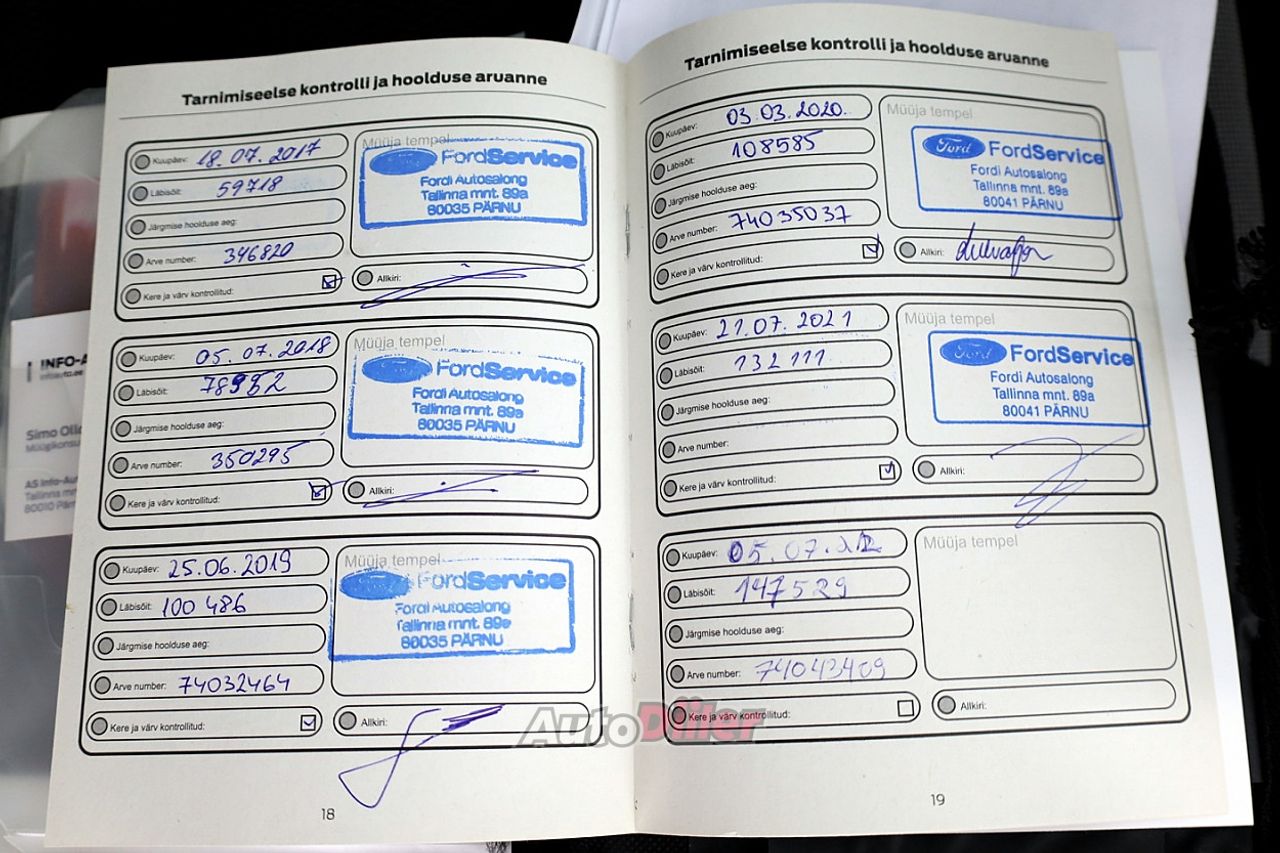 Tarnimiseelse kontrolli ja hoolduse aruanne
Kuupäev: 18.07.2017
Läbisõit: 59718
Järgmise hoolduse aeg:
Arve number: 346820
Kere ja värv kontrollitud:
Müüja tempel
Ford FordService
Fordi Autosalong
Tallinna mnt. 89a
80035 PÄRNU
Allkiri:
Kuupäev: 05.07.2018
Läbisõit:
Järgmise hoolduse aeg:
Arve number: 350295
Kere ja värv kontrollitud:
Müüja tempel
FordService
Fordi Autosalong
Tallinna mnt. 89a
80035 PÄRNU
Allkiri:
Kuupäev: 25.06.2019
Läbisõit: 100 486
Järgmise hoolduse aeg:
Arve number: 74032464
Kere ja värv kontrollitud:
Müüja tempel
FordService
Fordi Autosalong
Tallinna mnt. 89a
80035 PÄRNU
Allkiri:
18
Tarnimiseelse kontrolli ja hoolduse aruanne
Kuupäev: 03.03.2020.
Läbisõit: 108585
Järgmise hoolduse aeg:
Arve number: 74035037
Kere ja värv kontrollitud:
Müüja tempel
Ford FordService
Fordi Autosalong
Tallinna mnt. 89a
80041 PÄRNU
Allkiri:
Kuupäev: 21.07.2021
Läbisõit: 132 111
Järgmise hoolduse aeg:
Arve number:
Kere ja värv kontrollitud:
Müüja tempel
Ford FordService
Fordi Autosalong
Tallinna mnt. 89a
80041 PÄRNU
Allkiri:
Kuupäev: 05.07.22
Läbisõit: 147529
Järgmise hoolduse aeg:
Arve number: 74043409
Kere ja värv kontrollitud:
Müüja tempel
Allkiri:
19
INFO-A
infoauto.ee
Simo
Müügikonsu
AS Info-Aut
Tallinna mn
80010 Pärnu
AutoDiler